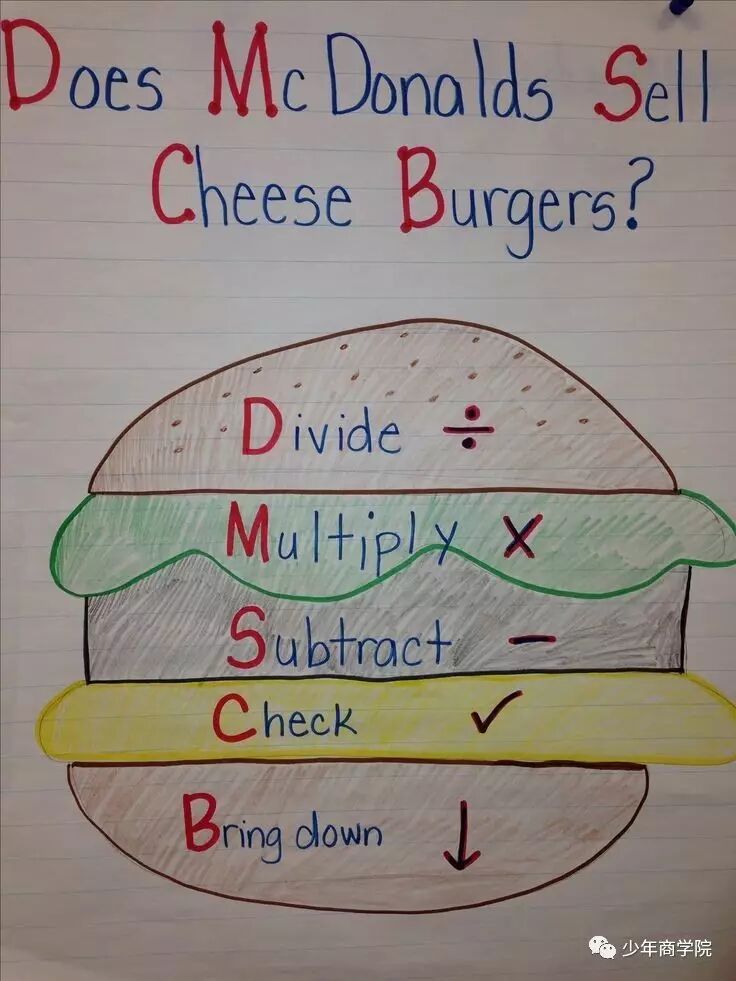 Does McDonalds Sell
Cheese Burgers?
Divide ÷
Multiply ×
Subtract −
Check ✓
Bring down ↓
少年商学院